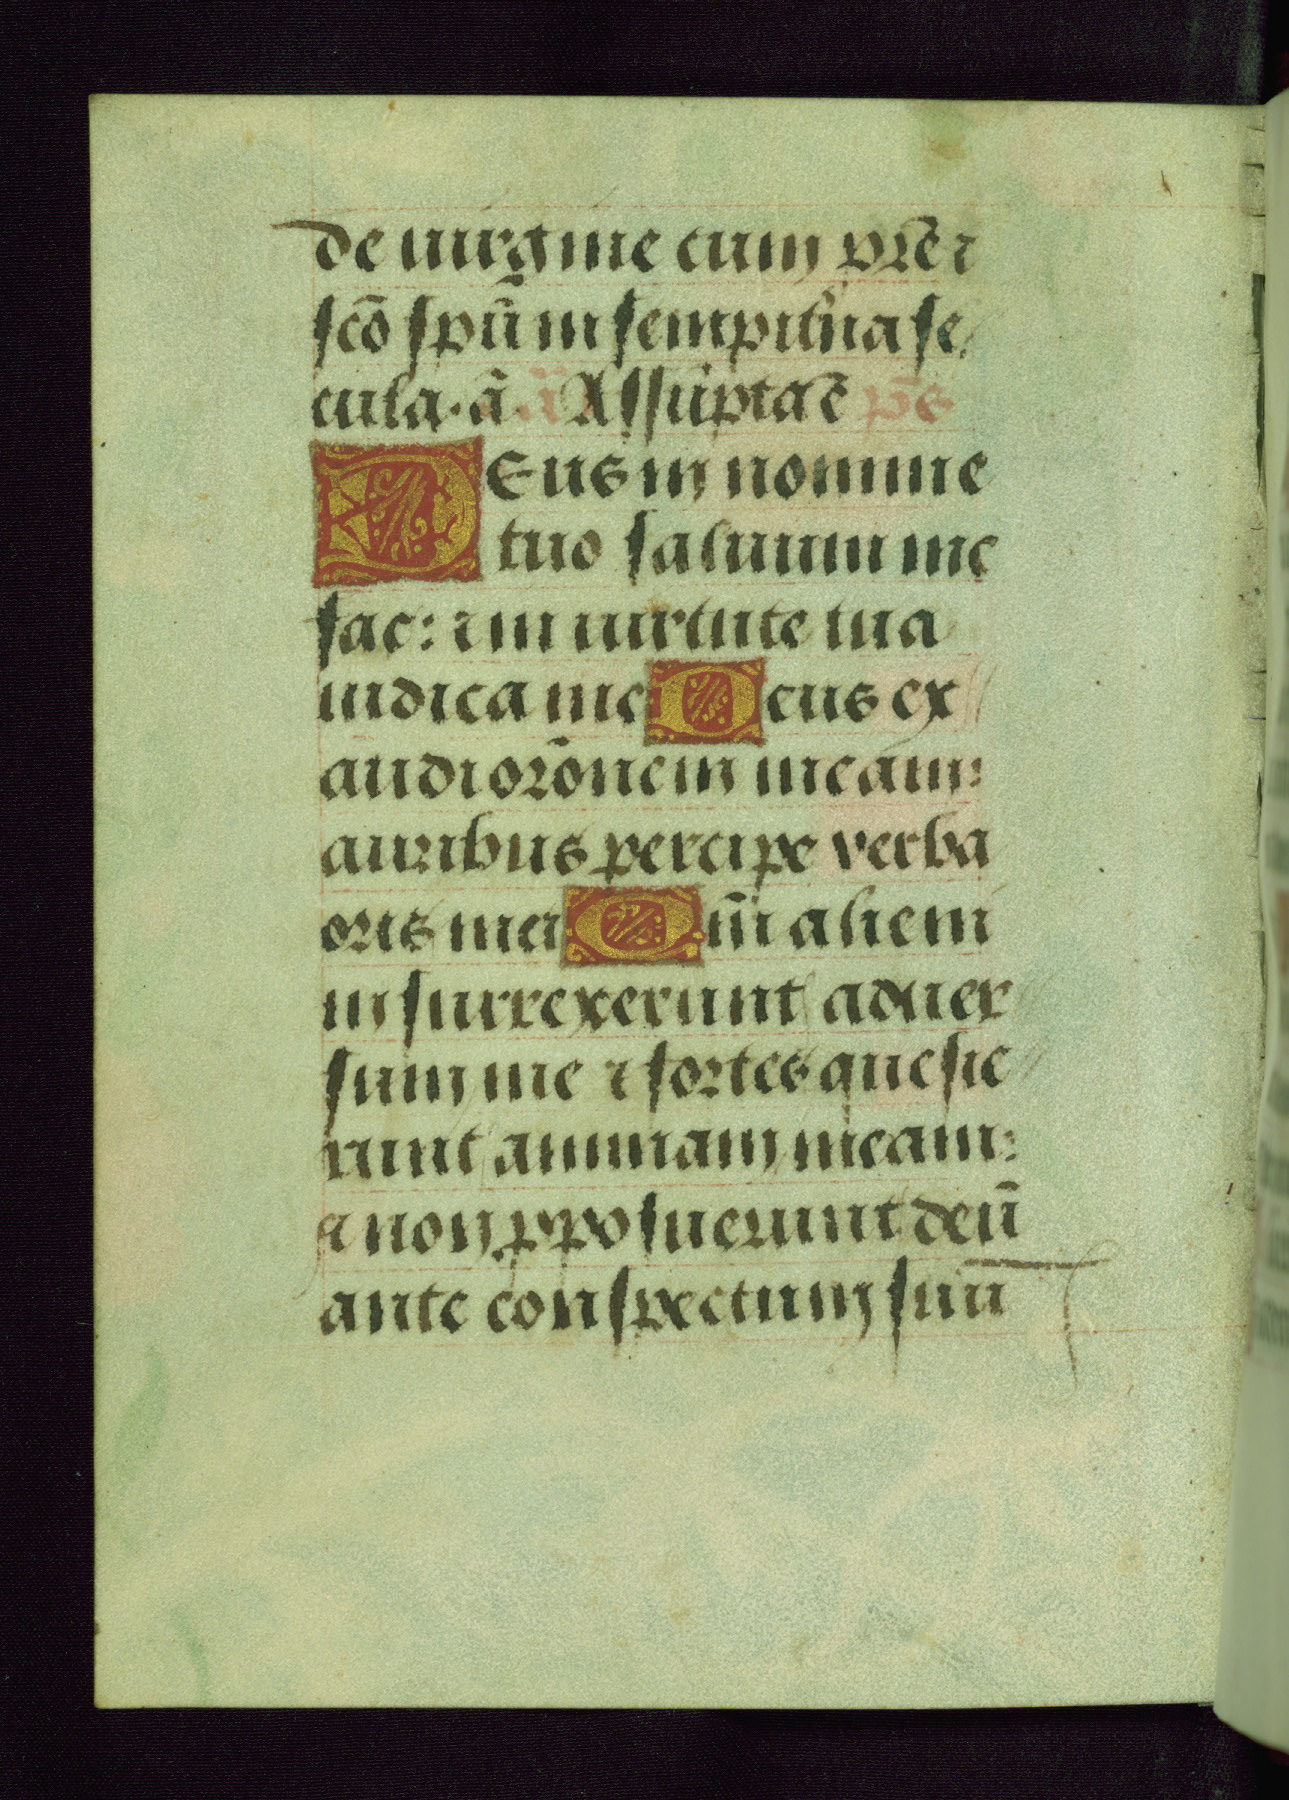 de uirgine cum pr̄e ⁊
sc̄o sp̄u in sempit̉na se
cula. ā. ā Assūpta ē ps̄
DEus in nomine
tuo saluum me
fac: ⁊ in uirtute tua
iudica me Deus ex
audi or̄onem meam:
auribus percipe verba
oris mei Qm̄ alieni
insurrexerunt aduer
sum me ⁊ fortes quesie
runt animam meam:
⁊ non ꝓposuerunt deū
ante conspectum suū